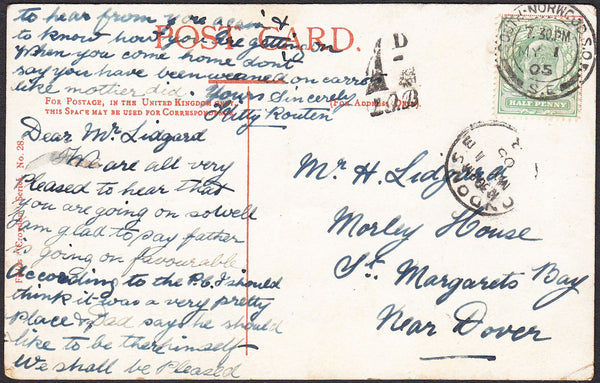 to hear from you again &
to know how you are getting on
When you come home don't
say you have been weaned on carrots
like mother did. Yours Sincerely
Kitty Routen
POST CARD.
FOR POSTAGE, IN THE UNITED KINGDOM ONLY,
THIS SPACE MAY BE USED FOR CORRESPONDENCE
(FOR ADDRESS ONLY.)
Dear Mr Lidgard
We are all very
Pleased to hear that
you are going on so well
I am glad to say father
is going on favourable
According to the P.C. I should
think it was a very pretty
place & Dad says he should
like to be there himself
We shall be Pleased
Series. No. 28.
Mr H. Lidgard
Morley House
St. Margarets Bay
Near Dover
1D
NORWOOD S.O.
7.30 PM
MY 1
05
S.E
HALF PENNY
LONDON S.E